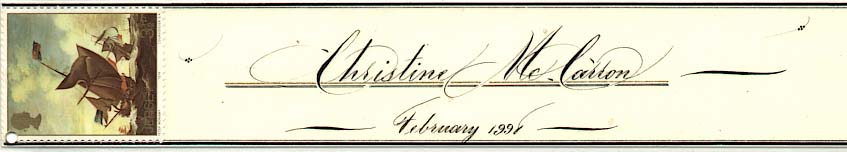 Christine Mc.Carron
February 1998